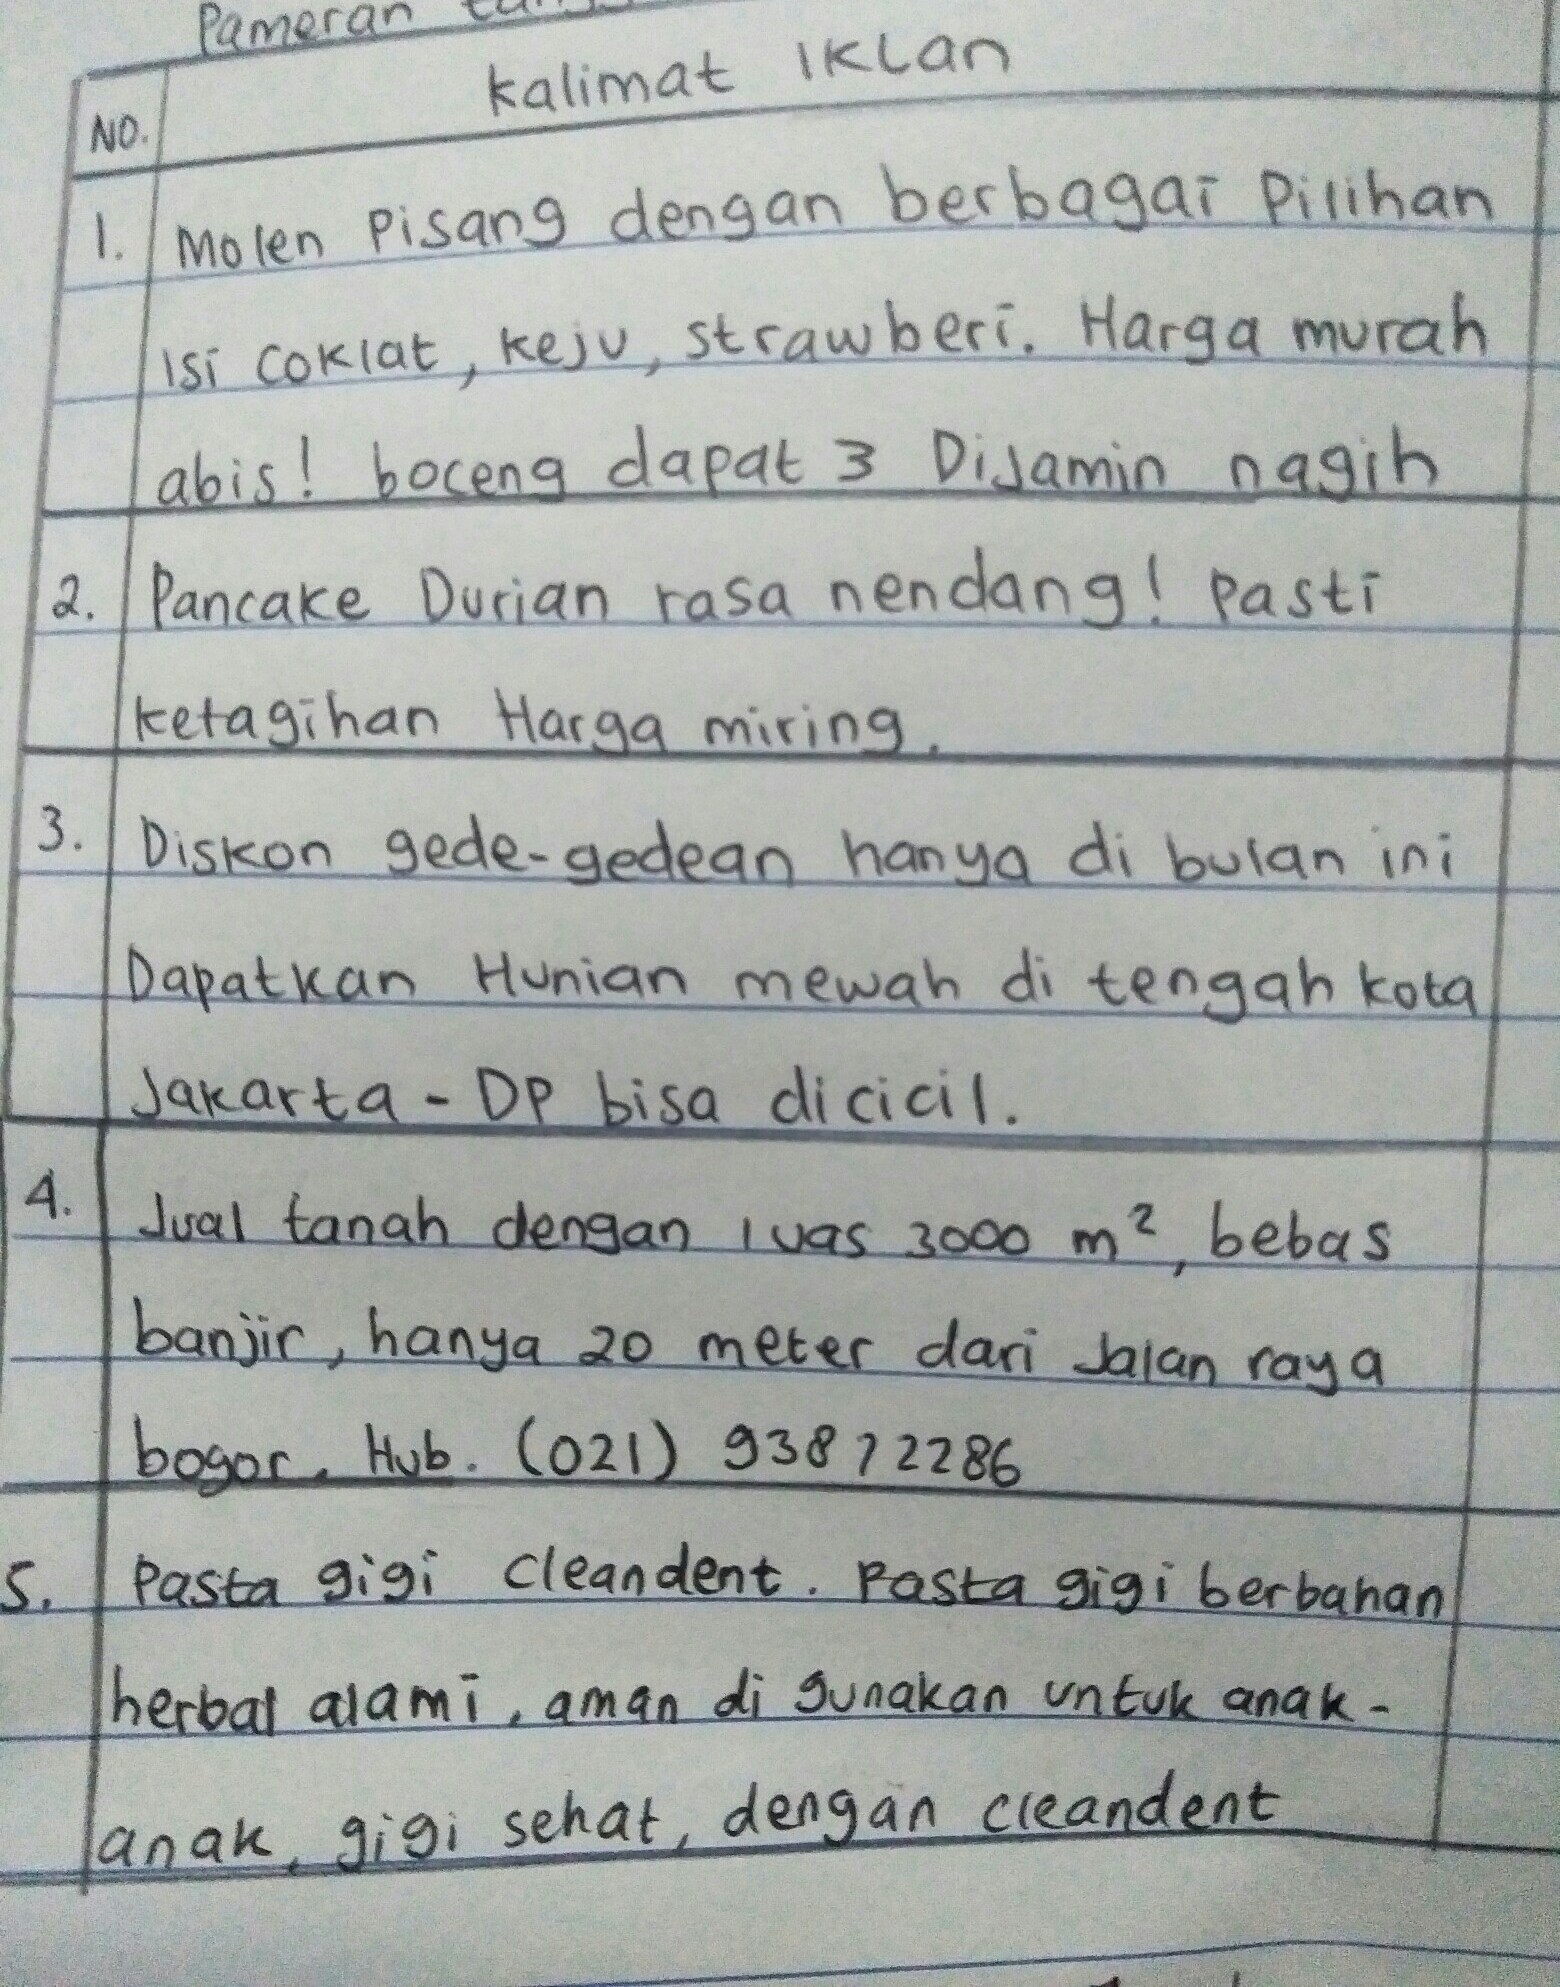 Pameran
NO. Kalimat Iklan
1. Molen Pisang dengan berbagai Pilihan
isi coklat, keju, strawberi. Harga murah
abis! boceng dapat 3 Dijamin nagih
2. Pancake Durian rasa nendang! Pasti
ketagihan Harga miring.
3. Diskon gede-gedean hanya di bulan ini
Dapatkan Hunian mewah di tengah kota
Jakarta - DP bisa dicicil.
4. Jual tanah dengan luas 3000 m², bebas
banjir, hanya 20 meter dari Jalan raya
bogor. Hub. (021) 93872286
5. Pasta gigi Cleandent. Pasta gigi berbahan
herbal alami, aman di gunakan untuk anak-
anak, gigi sehat, dengan cleandent